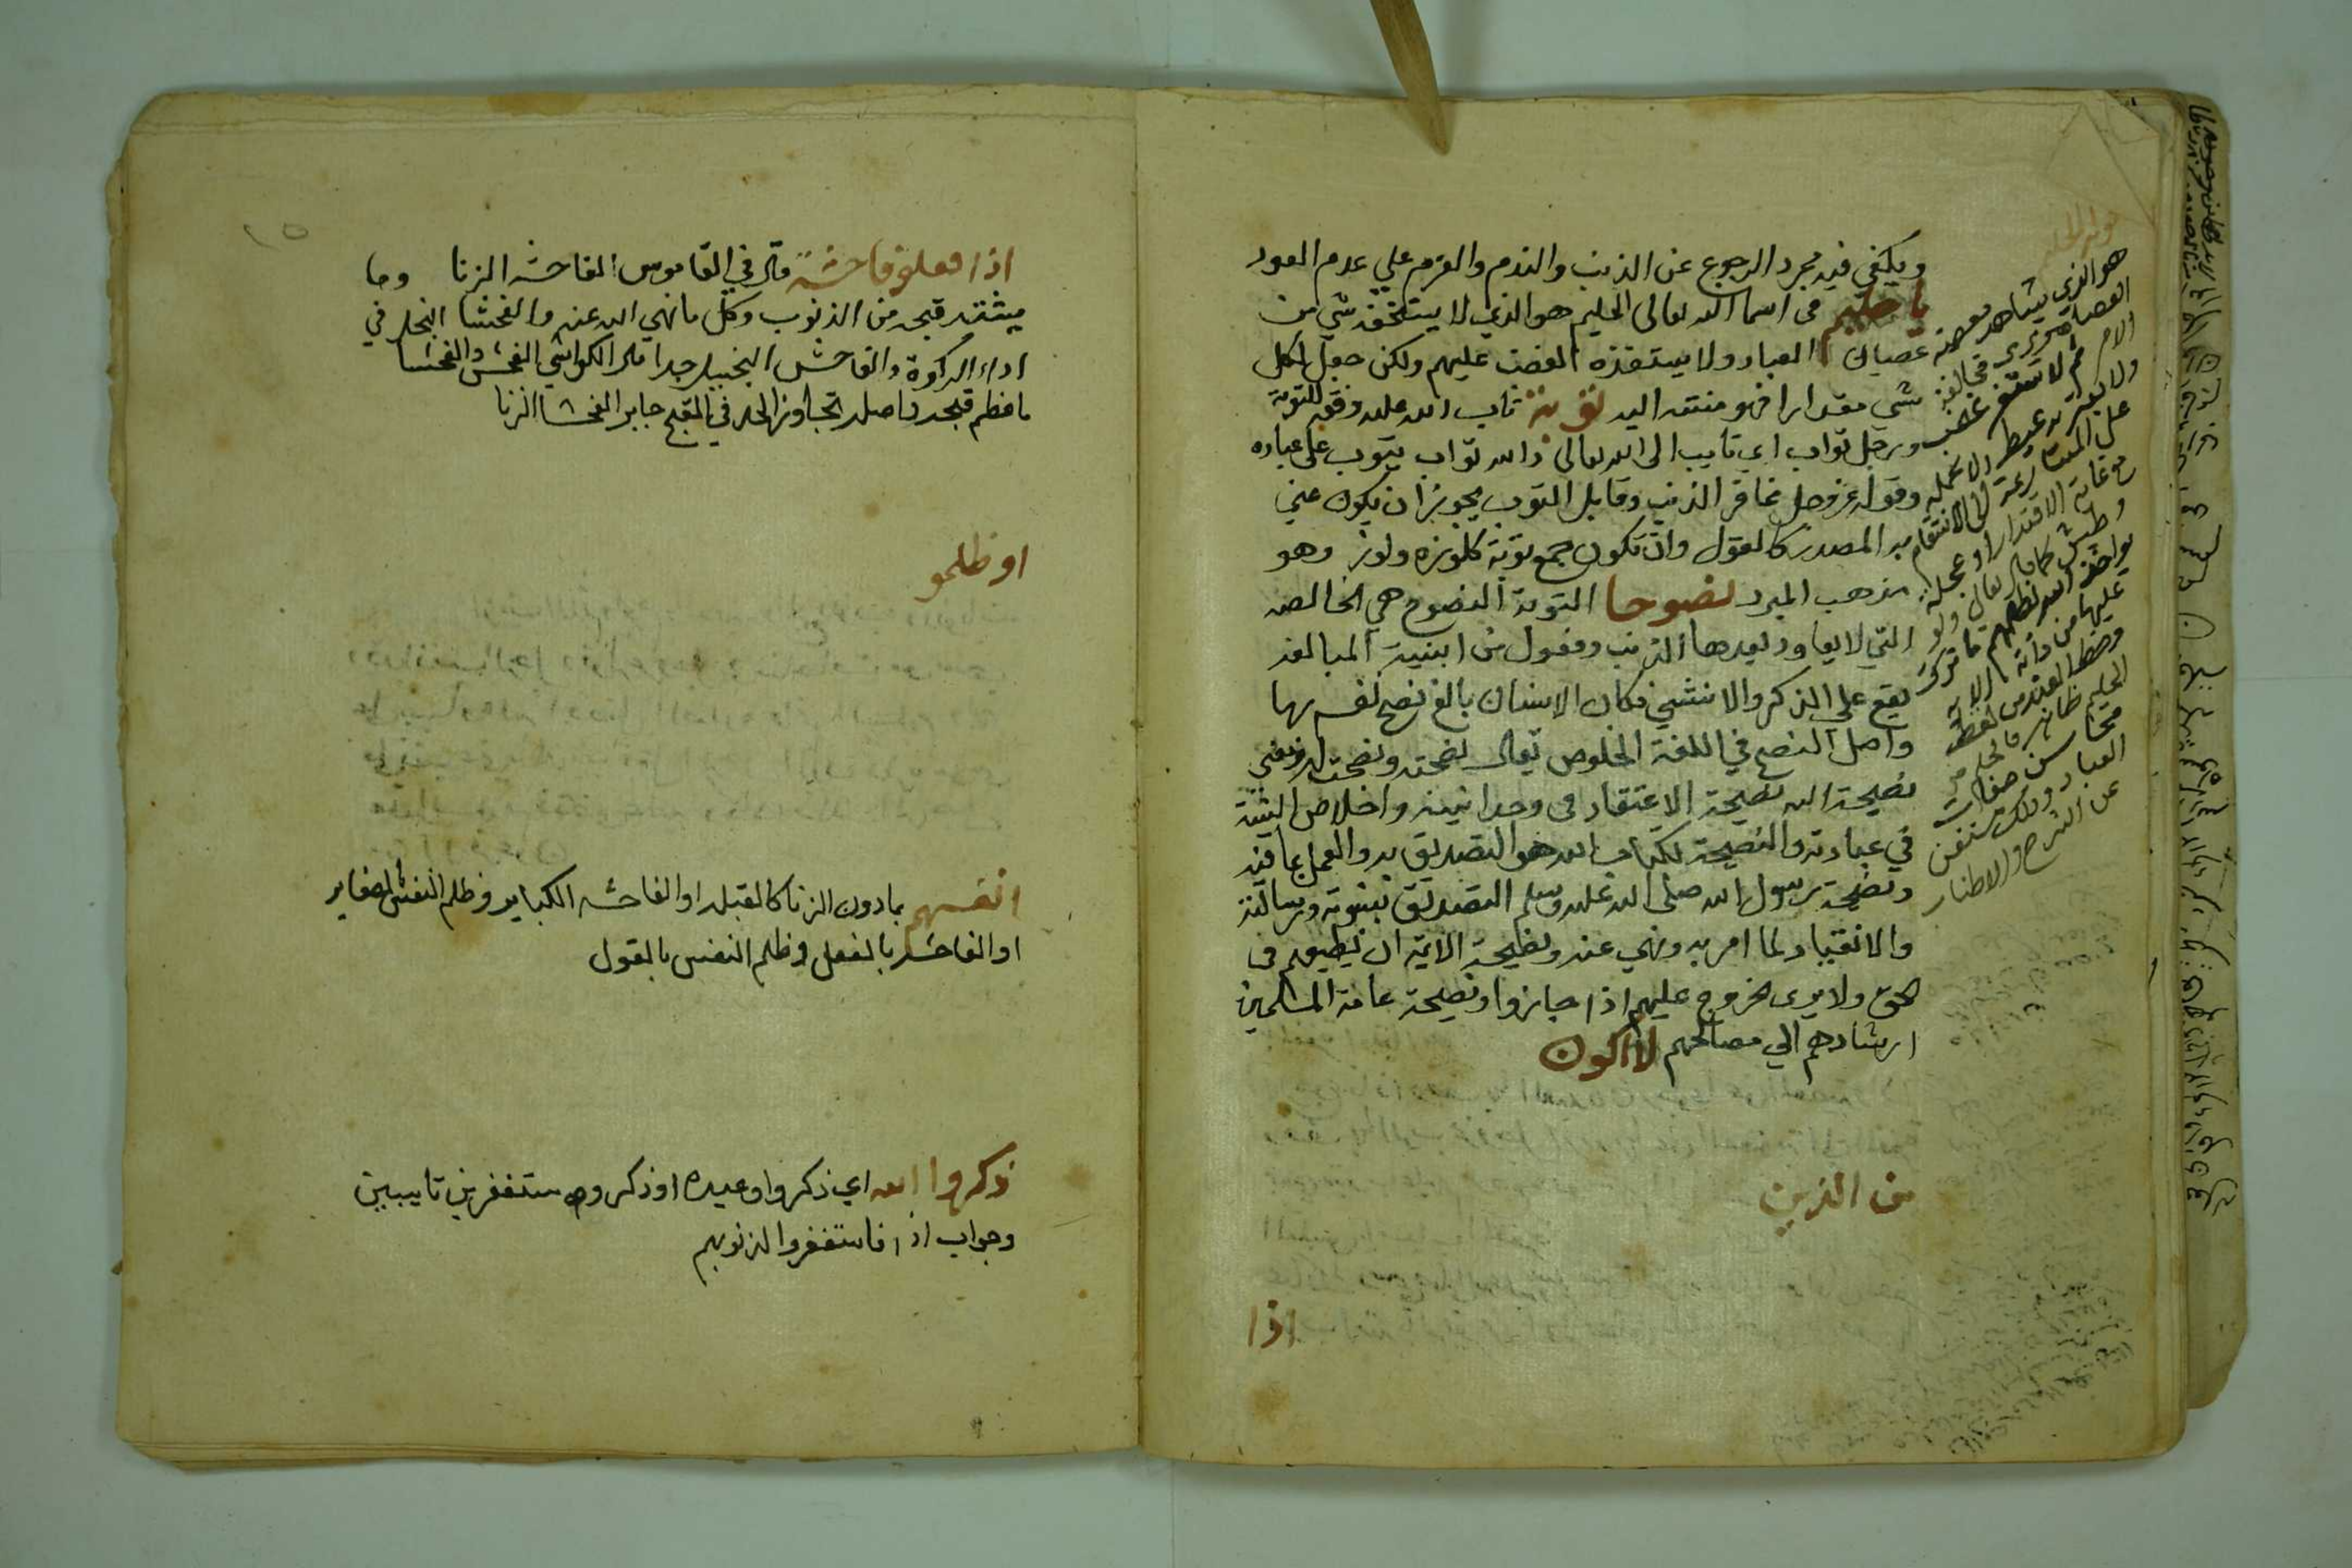 ويكفي فيه مجرد الرجوع عن الذنب والندم والعزم علي عدم العود
يا حليم في اسما الله تعالى الحليم هو الذي لا يستخفه شي من
عصيان العباد ولا يستفزه الغضب عليهم ولكن جعل لكل
شي مقدارا فهو منته اليه توبة تاب الله عليه وفقه للتوبة
ورجل تواب اي تايب الى الله تعالى والله تواب يتوب على عباده
وقوله عز وجل غافر الذنب وقابل التوب يجوز ان يكون عني
به المصدر كالقول وان تكون جمع توبة كلوزه ولوز وهو
مذهب المبرد نصوحا التوبة النصوح هي الخالصه
التي لا يعاود بعدها الذنب وفعول من ابنية المبالغه
يقع على الذكر والانثي فكان الانسان بالغ نصح نفسه بها
واصل النصح في اللغة الخلوص يقال نصحته ونصحت له ومعني
نصيحة الله نصيحة الاعتقاد في وحدانيته واخلاص النية
في عبادته والنصيحة لكتاب الله هو التصديق به والعمل بما فيه
ونصيحة رسول الله صلى الله عليه وسلم التصديق بنبوته ورسالته
والانقياد لما امر به ونهي عنه ونصيحة الايمة ان يطيعهم في
الحق ولا يرى الخروج عليهم اذا جاروا ونصيحة عامة المسلمين
ارشادهم الي مصالحهم لا اكون
من الذين
اذا
هو الذي يشاهد معصية
العصاه ويرى مخالفة
الامر ثم لا يستفزه غضب
ولا يعتريه غيظ ولا يحمله
على المسارعة الى الانتقام
مع غاية الاقتدار او عجلة
وطيش كما قال تعالى ولو
يواخذ الله الناس بظلمهم ما ترك
عليها من دابة الاية
وحظ العبد من لفظ
الحليم ظاهر فالحلم من
محاسن صفات
العباد وذلك مستغن
عن الشرح والاطناب
١٥
اذا فعلو فاحشة قال في القاموس الفاحشه الزنا وما
يشتد قبحه من الذنوب وكل ما نهي الله عنه والفحشا البخل في
اداء الزكوة والفاحش البخيل جدا قال الكواشي الفحش والفحشا
ما عظم قبحه واصله تجاوز الحد في القبح جابر الفحشا الزنا
او ظلمو
انفسهم بما دون الزنا كالقبله او الفاحشه الكباير وظلم النفس الصغاير
او الفاحشه بالفعل وظلم النفس بالقول
ذكروا الله اي ذكروا وعيده او ذكروه مستغفرين تايبين
وجواب اذا فاستغفروا لذنوبهم